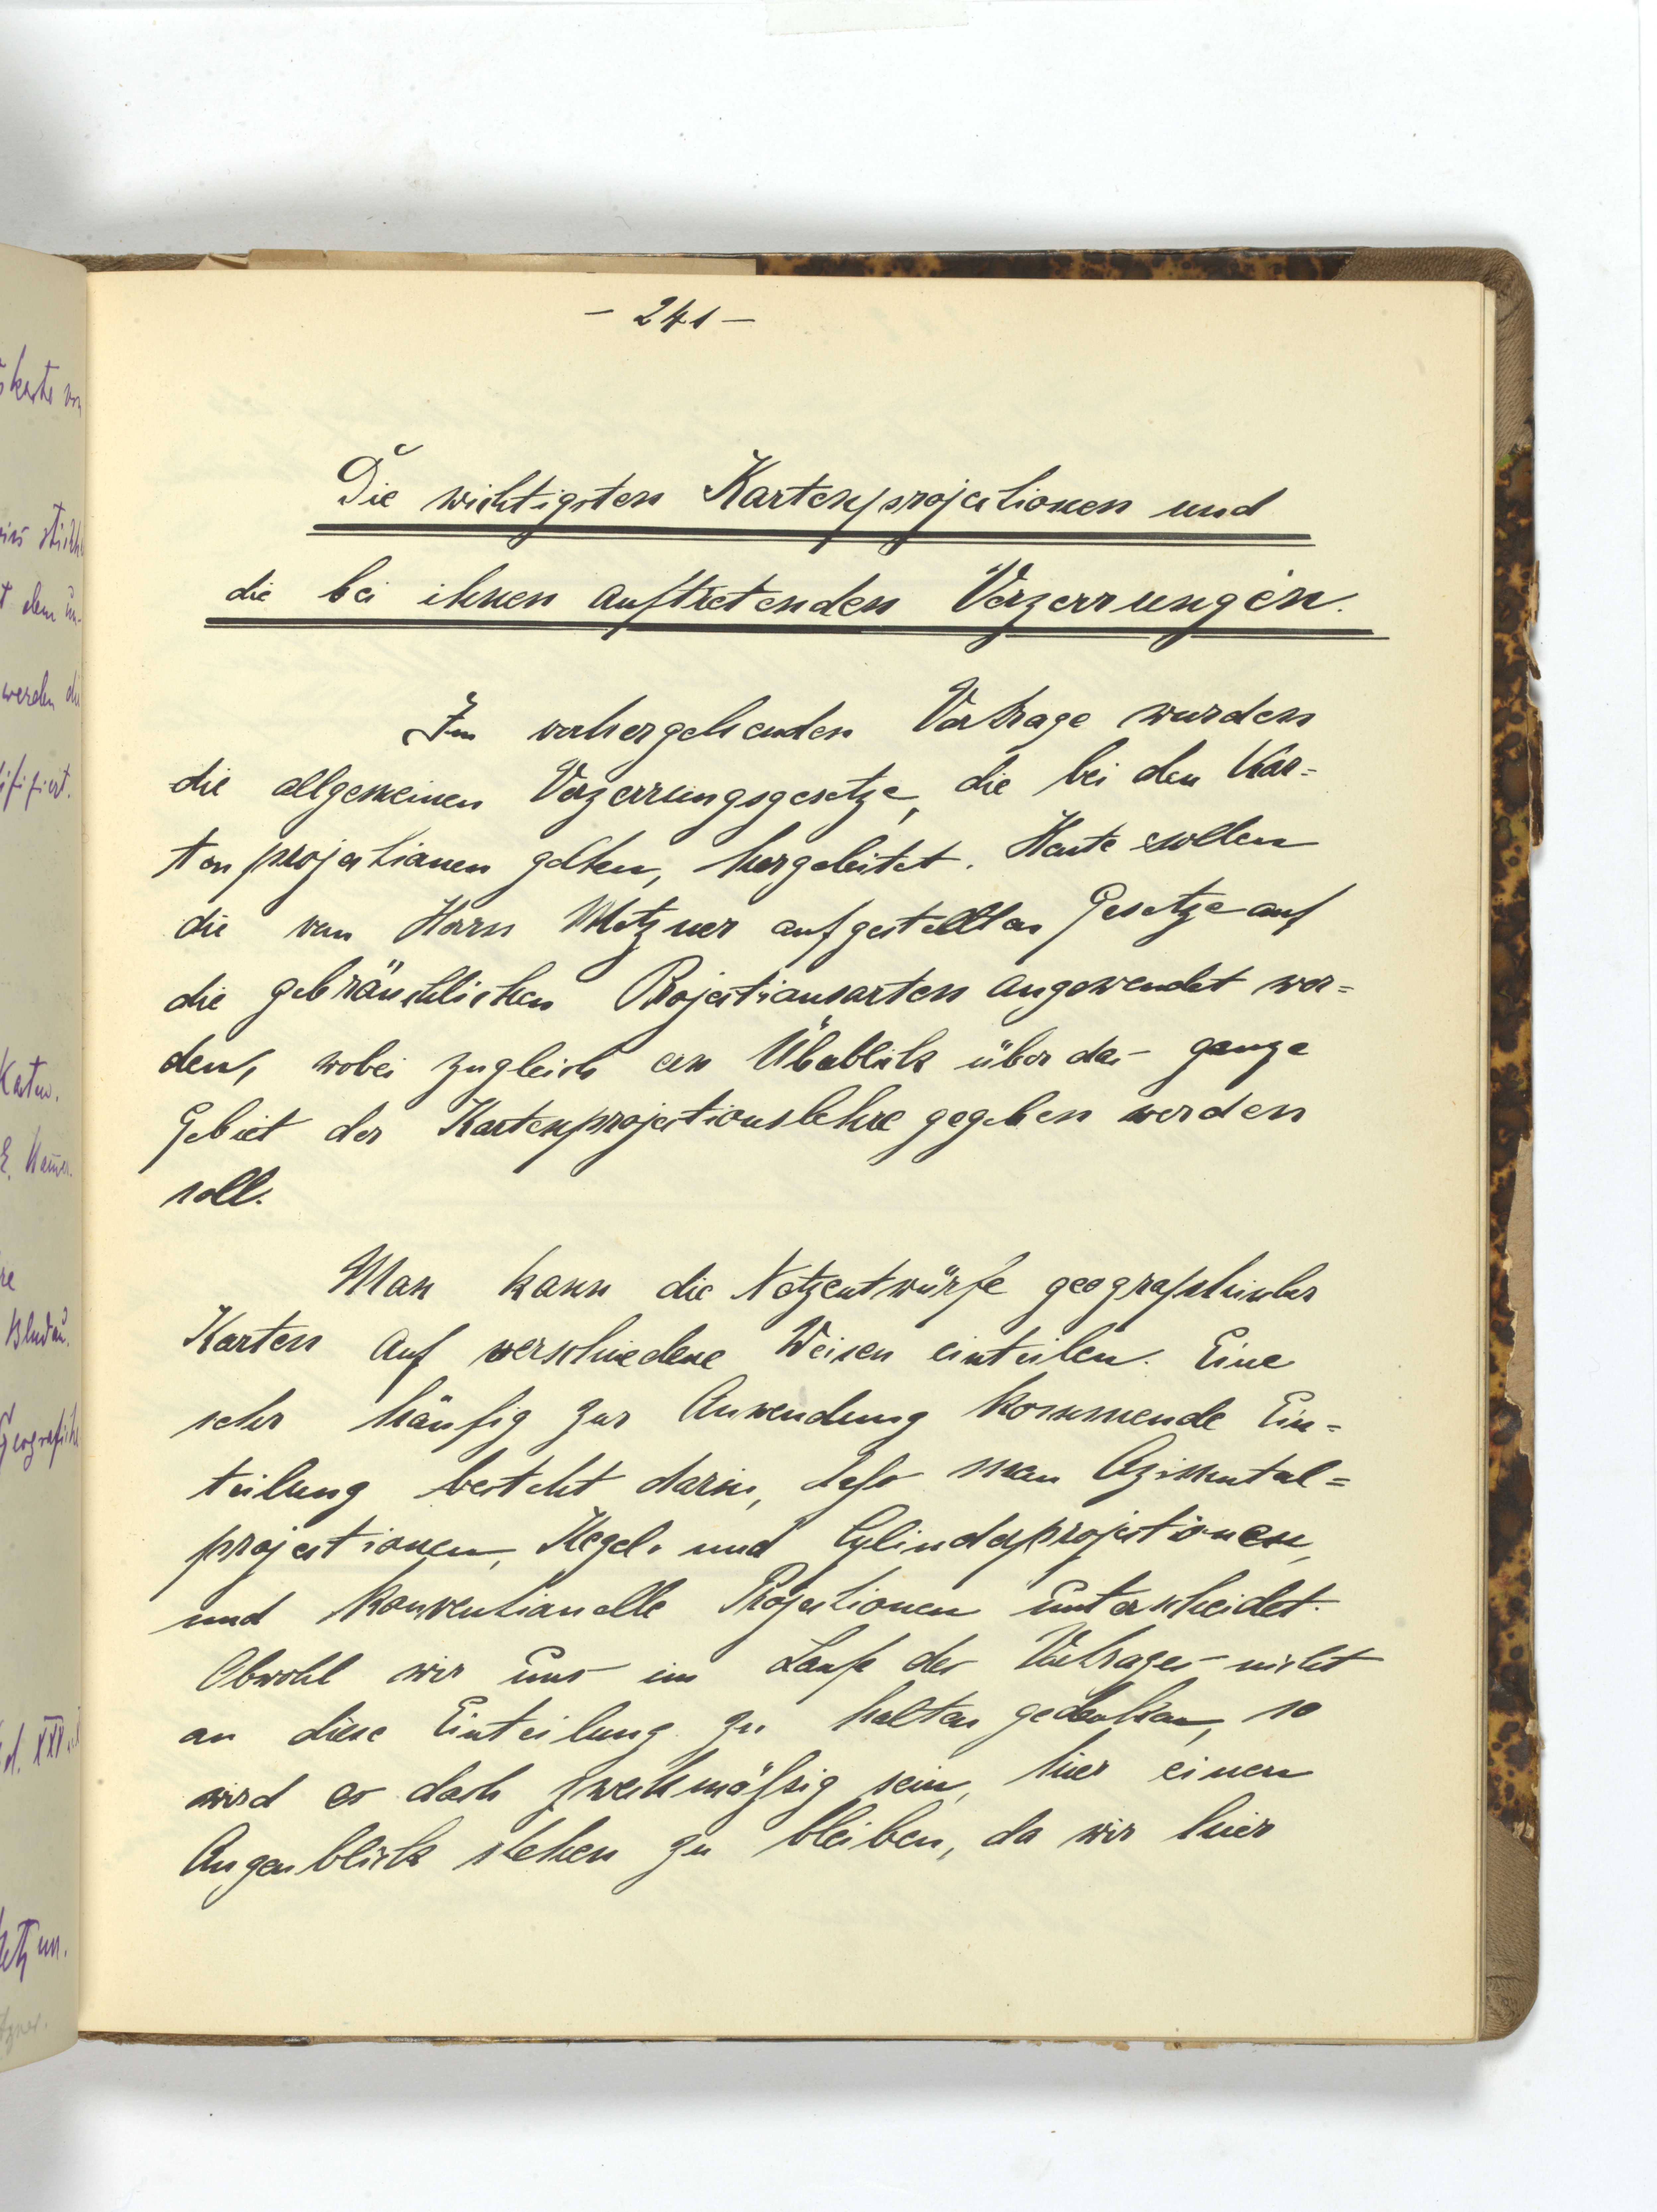 - 241 -
Die wichtigsten Kartenprojectionen und
die bei ihnen auftretenden Verzerrungen.
Im vorhergehenden Vortrage wurden
die allgemeinen Verzerrungsgesetze, die bei den Kar=
tenprojectionen gelten, hergeleitet. Heute sollen
die von Herrn Metzner aufgestellten Gesetze auf
die gebräuchlichen Projectionsarten angewendet wer=
den, wobei zugleich ein Überblick über das ganze
Gebiet der Kartenprojectionslehre gegeben werden
soll.
Man kann die Netzentwürfe geographischer
Karten auf verschiedene Weisen einteilen. Eine
sehr häufig zur Anwendung kommende Ein=
teilung besteht darin, daß man Azimutal=
projectionen, Kegel- und Cylinderprojectionen,
und konventionelle Projectionen unterscheidet.
Obwohl wir uns im Laufe des Vortrages nicht
an diese Einteilung zu halten gedenken, so
wird es doch zweckmäßig sein, hier einen
Augenblick stehen zu bleiben, da wir hier